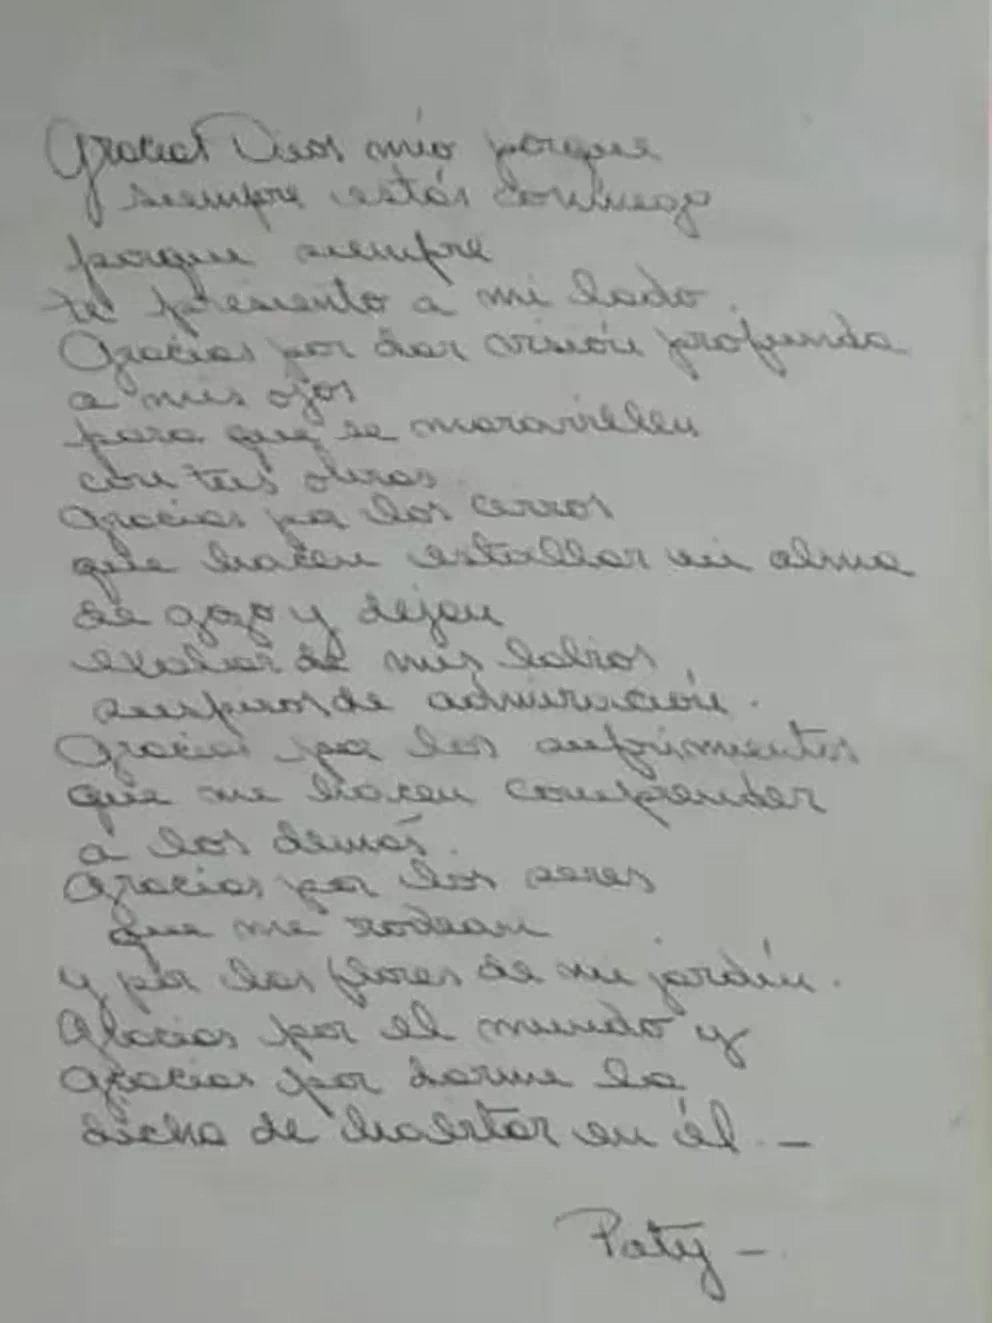 Gracias Dios mío porque
siempre estás conmigo
porque siempre
te presiento a mi lado.
Gracias por dar visión profunda
a mis ojos
para que se maravillen
con tus obras
Gracias por los cerros
que hacen estallar mi alma
de gozo y dejan
exhalar de mis labios
suspiros de admiración.
Gracias por los sufrimientos
que me hacen comprender
a los demás.
Gracias por los seres
que me rodean
y por las flores de mi jardín.
Gracias por el mundo y
Gracias por darme la
dicha de en él. —
Paty —